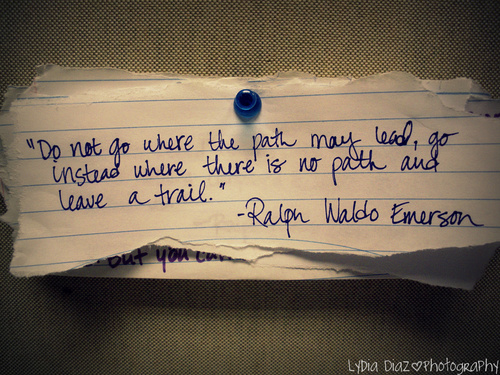 "Do not go where the path may lead, go
instead where there is no path and
leave a trail."
-Ralph Waldo Emerson
but you can
Lydia Diaz♡Photography